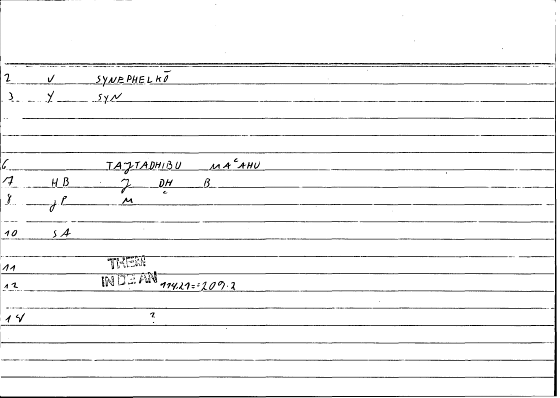 2 V SYNEPHELKŌ
3 Y SYN
6 TAJTADHIBU MAʿAHU
7 HB J DH B
8 JP M ʿ
10 SA
11 THEM
12 IN DE AN 114.21=:209.2
14 ?